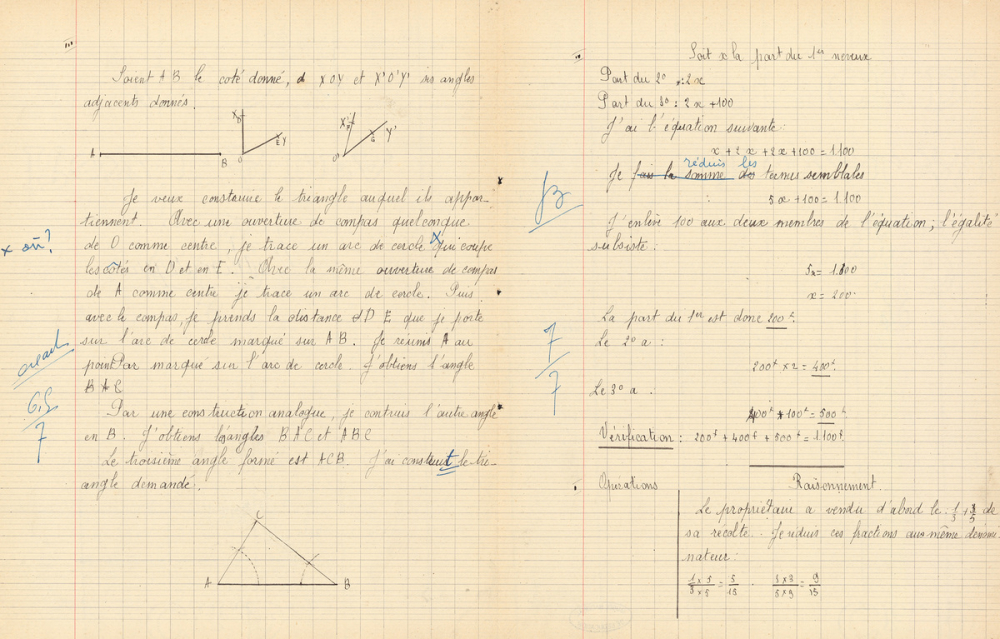 III
Soient AB le coté donné, XOY et X'O'Y' les angles
adjacents donnés.
X D
O E Y
X'
O' G Y'
A B
Je veux construire le triangle auquel ils appar-
tiennent. Avec une ouverture de compas quelconque
de O comme centre, je trace un arc de cercle qui coupe
x où?
les côtés en D et en E. Avec la même ouverture de compas
de A comme centre je trace un arc de cercle. Puis
avec le compas, je prends la distance D E que je porte
sur l'arc de cercle marqué sur AB. Je réunis A au
point marqué sur l'arc de cercle. J'obtiens l'angle
BAC
6,5
7
Par une construction analogue, je contruis l'autre angle
en B. J'obtiens les angles BAC et ABC
Le troisième angle formé est ACB. J'ai construit le tri-
angle demandé.
C
A B
Soit x la part du 1er neveux
Part du 2º : 2x
Part du 3º : 2x + 100
J'ai l'équation suivante
x + 2x + 2x + 100 = 1.100
réduis les
Je fais la somme des termes semblales
5x + 100 = 1.100
J'enlève 100 aux deux membres de l'équation ; l'égalité
subsiste :
5x = 1.000
x = 200
La part du 1er est donc 200f.
Le 2º a :
200f x 2 = 400f.
7
7
Le 3º a :
400f + 100f = 500f
Vérification : 200f + 400f + 500f = 1.100f
Opérations Raisonnement.
Le propriétaire a vendu d'abord le 1/3 + 3/5 de
sa récolte. Je réduis ces fractions au même dénomi
nateur :
1 x 5 / 3 x 5 = 5/15 3 x 3 / 5 x 3 = 9/15